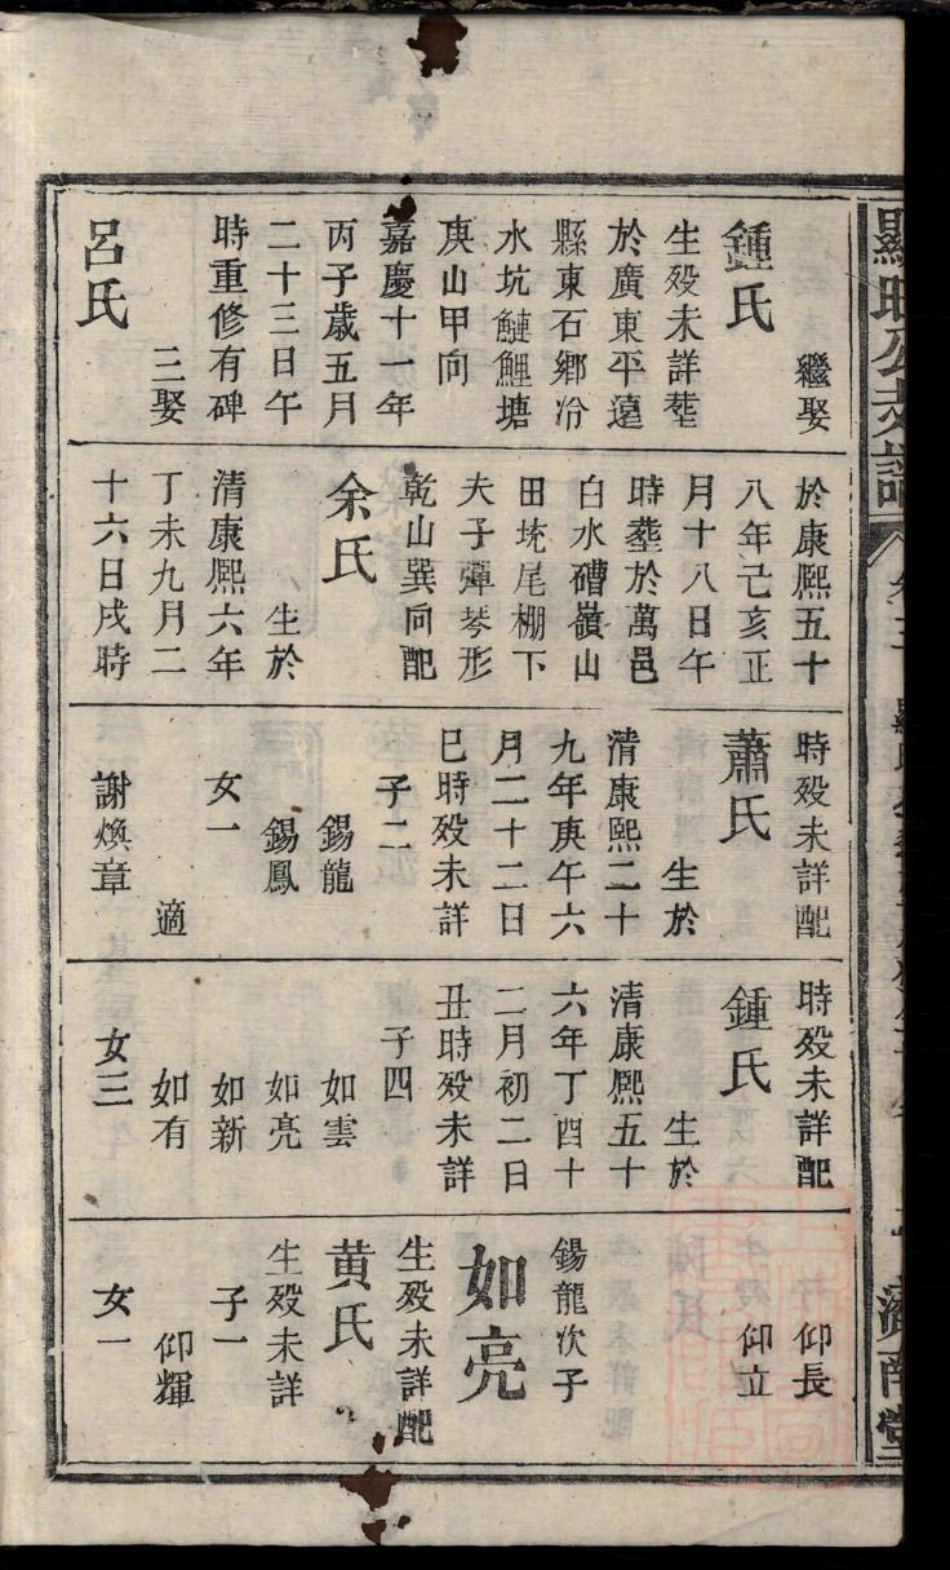 繼娶
鍾氏
生歿未詳塟
於廣東平遠
縣東石鄉冷
水坑鰱鯉塘
庚山甲向
嘉慶十一年
丙子歲五月
二十三日午
時重修有碑
三娶
呂氏
於康熙五十
八年己亥正
月十八日午
時塟於萬邑
白水磄嶺山
田垅尾棚下
夫子彈琴形
乾山巽向配
余氏
生於
清康熙六年
丁未九月二
十六日戌時
時歿未詳配
蕭氏
生於
清康熙二十
九年庚午六
月二十二日
巳時歿未詳
子二
錫龍
錫鳳
女一
適
謝煥章
時歿未詳配
鍾氏
生於
清康熙五十
六年丁酉十
二月初二日
丑時歿未詳
子四
如雲
如亮
如新
如有
女三
仰長
仰立
錫龍次子
如亮
生歿未詳配
黄氏
生歿未詳
子一
仰輝
女一